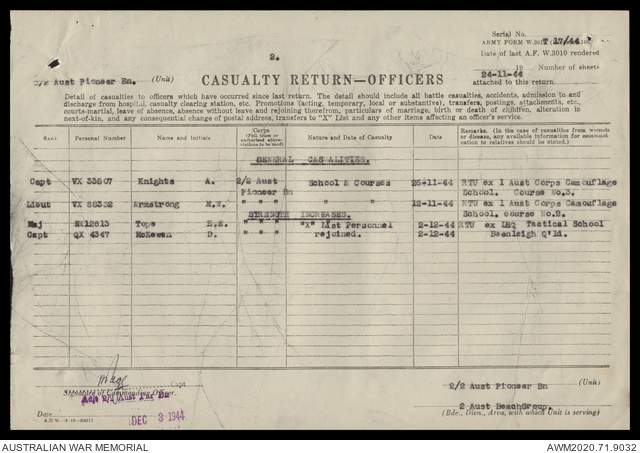 Serial No.
ARMY FORM W.3010 T 17/44
Date of last A.F. W.3010 rendered
2.
24-11-44
19 Number of sheets
attached to this return
2/2 Aust Pioneer Bn. (Unit)
CASUALTY RETURN—OFFICERS
Detail of casualties to officers which have occurred since last return. The detail should include all battle casualties, accidents, admission to and
discharge from hospital, casualty clearing station, etc. Promotions (acting, temporary, local or substantive), transfers, postings, attachments, etc.,
courts-martial, leave of absence, absence without leave and rejoining therefrom, particulars of marriage, birth or death of children, alteration in
next-of-kin, and any consequential change of postal address, transfers to "X" List and any other items affecting an officer's service.
Rank Personal Number Name and Initials Corps (Full title or authorised abbreviations to be used) Nature and Date of Casualty Remarks. (In the case of casualties from wounds or disease, any available information for communication to relatives should be stated.)
GENERAL CASUALTIES.
Capt VX 33807 Knights A. 2/2 Aust School & Courses 26-11-44 RTU ex 1 Aust Corps Camouflage
Pioneer Bn School. Course No.3.
Lieut VX 88332 Armstrong " " " " " 12-11-44 RTU ex 1 Aust Corps Camouflage
STRENGTH INCREASES. School, course No.2.
Maj NX12613 Tope " " " "X" List Personnel 2-12-44 RTU ex LHQ Tactical School
Capt QX 4347 McKewen D. " " " rejoined. 2-12-44 Beenleigh Q'ld.
Capt
Signature of Commanding Officer.
2/2 Aust Pioneer Bn (Unit)
2 Aust BeachGroup.
(Bde., Divn., Area, with which Unit is serving)
Date
DEC 3 1944
AUSTRALIAN WAR MEMORIAL
AWM2020.71.9032